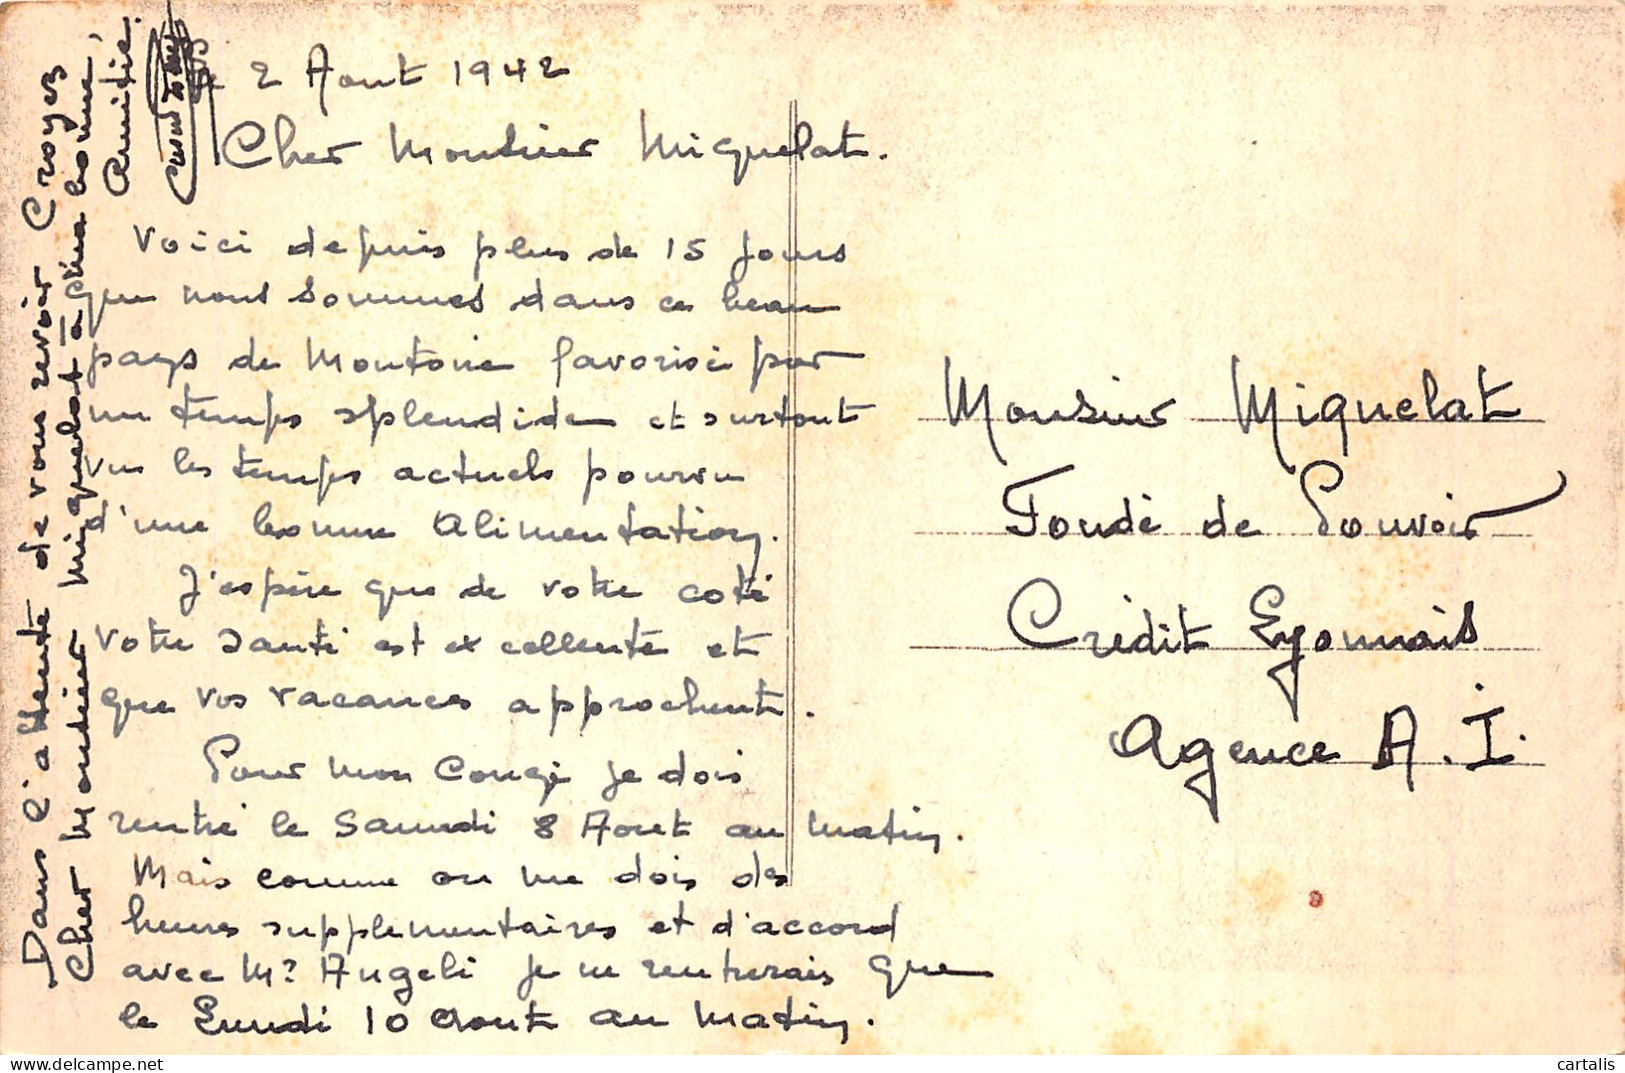 Le 2 Aout 1942
Cher Monsieur Miquelat.
Voici depuis plus de 15 jours
que nous sommes dans ce beau
pays de Montoire favorisé par
un temps splendide et surtout
vu les temps actuels pourvu
d'une bonne Alimentation.
J'espère que de votre coté
votre santé est excellente et
que vos vacances approchent.
Pour mon Congé je dois
rentré le Samedi 8 Aout au matin.
Mais comme on me dois des
heures supplementaires et d'accord
avec Mr Angeli je ne rentrerais que
le Lundi 10 Aout au matin.
Dans l'attente de vous revoir Croyez
Cher Monsieur Miquelat à ma bonne,
Amitié.
Monsieur Miquelat
Fondé de Pouvoir
Crédit Lyonnais
Agence A.I.
cartalis